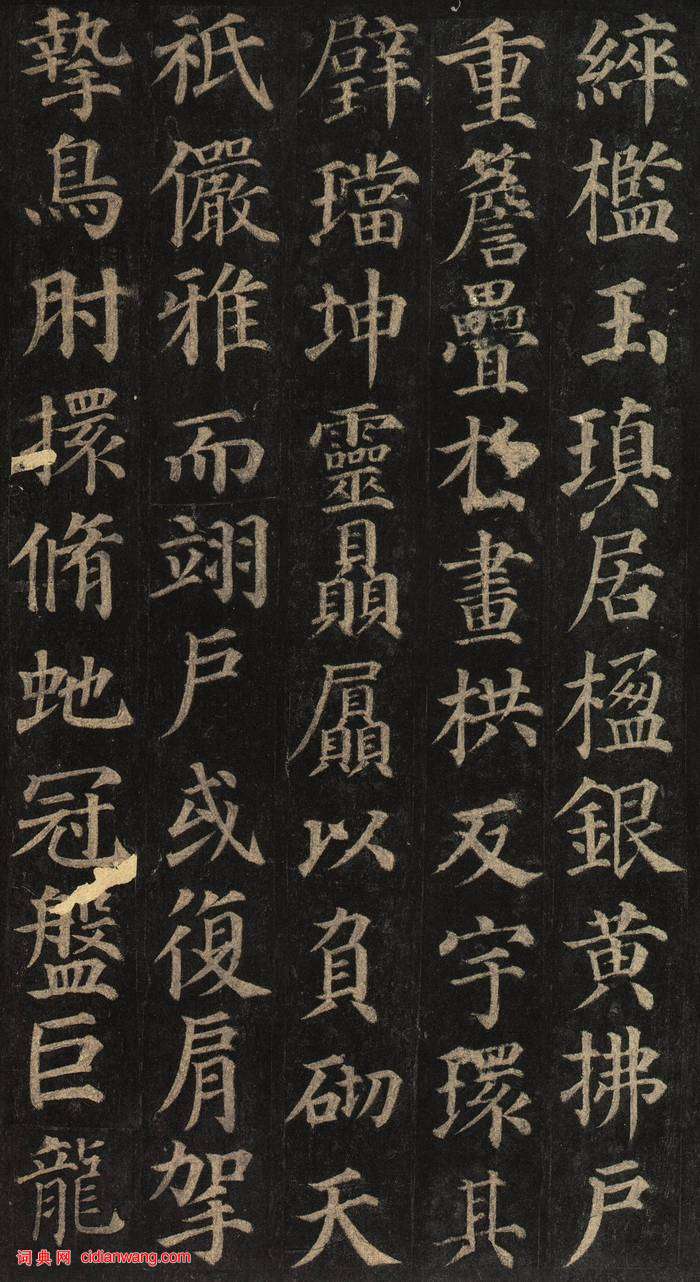 綷檻玉瑱居楹銀黃拂戶
重簷疊於畫栱反宇環其
璧璫坤靈贔屭以負砌天
祇儼雅而翊戶或復肩拏
摯鳥肘擐脩虵冠盤巨龍
词典网 cidianwang.com